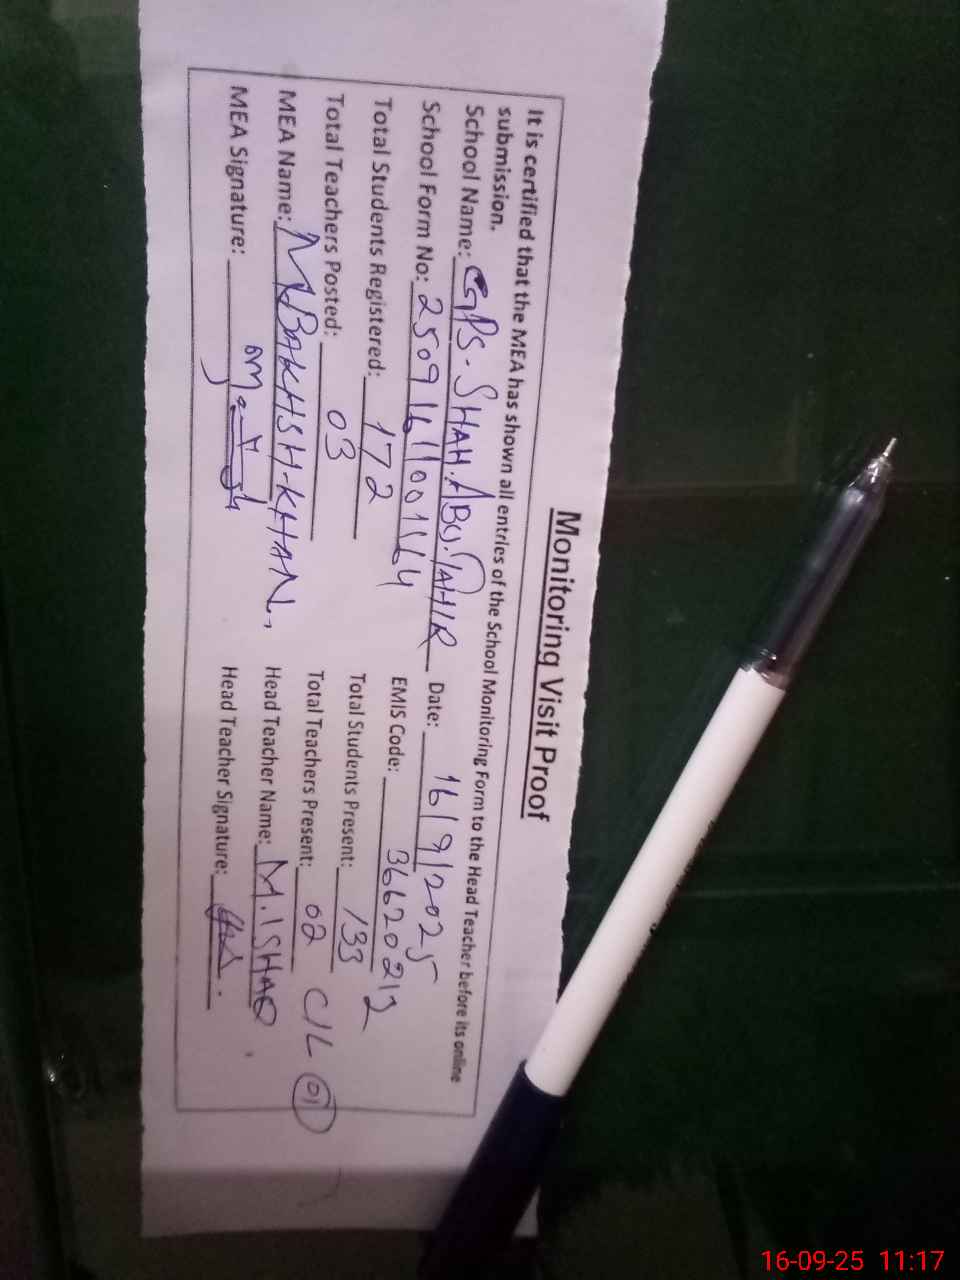 Monitoring Visit Proof
It is certified that the MEA has shown all entries of the School Monitoring Form to the Head Teacher before its online
submission.
School Name: GPS. SHAH. ABU. TAHIR Date: 16/9/2025
School Form No: 2509161001164 EMIS Code: 36620212
Total Students Registered: 172 Total Students Present: 133
Total Teachers Posted: 03 Total Teachers Present: 02 C/L 01
MEA Name: M BAKHSH-KHAN. Head Teacher Name: M. ISHAQ
MEA Signature: Head Teacher Signature:
16-09-25 11:17